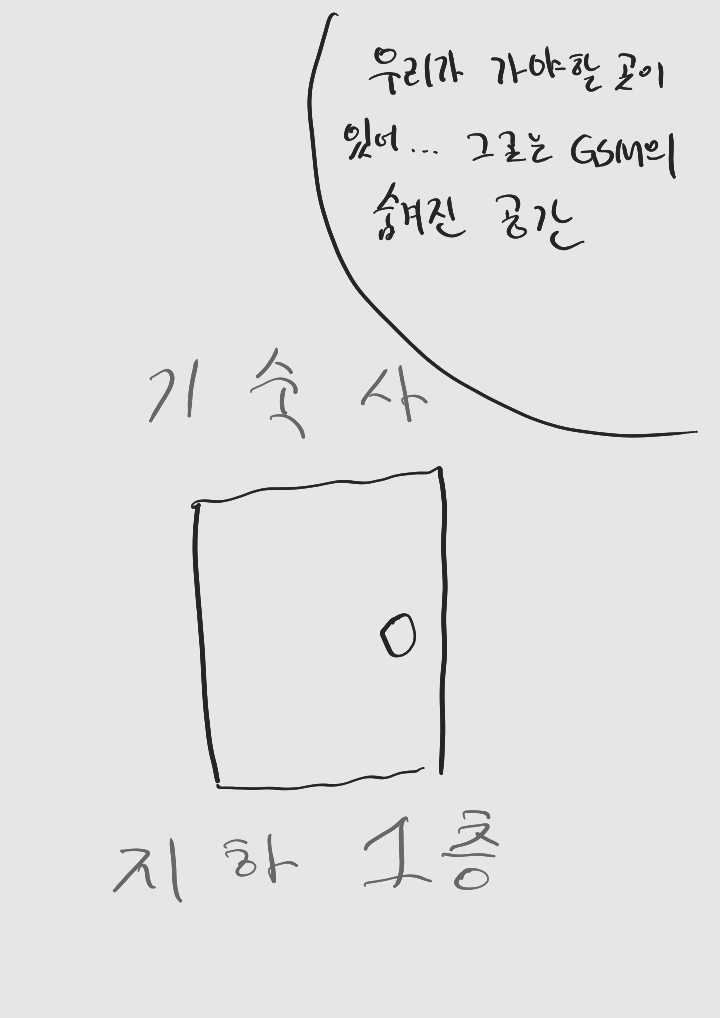 우리가 가야할 곳이
있어... 그곳은 GSM의
숨겨진 공간
기숙사
지하 1층